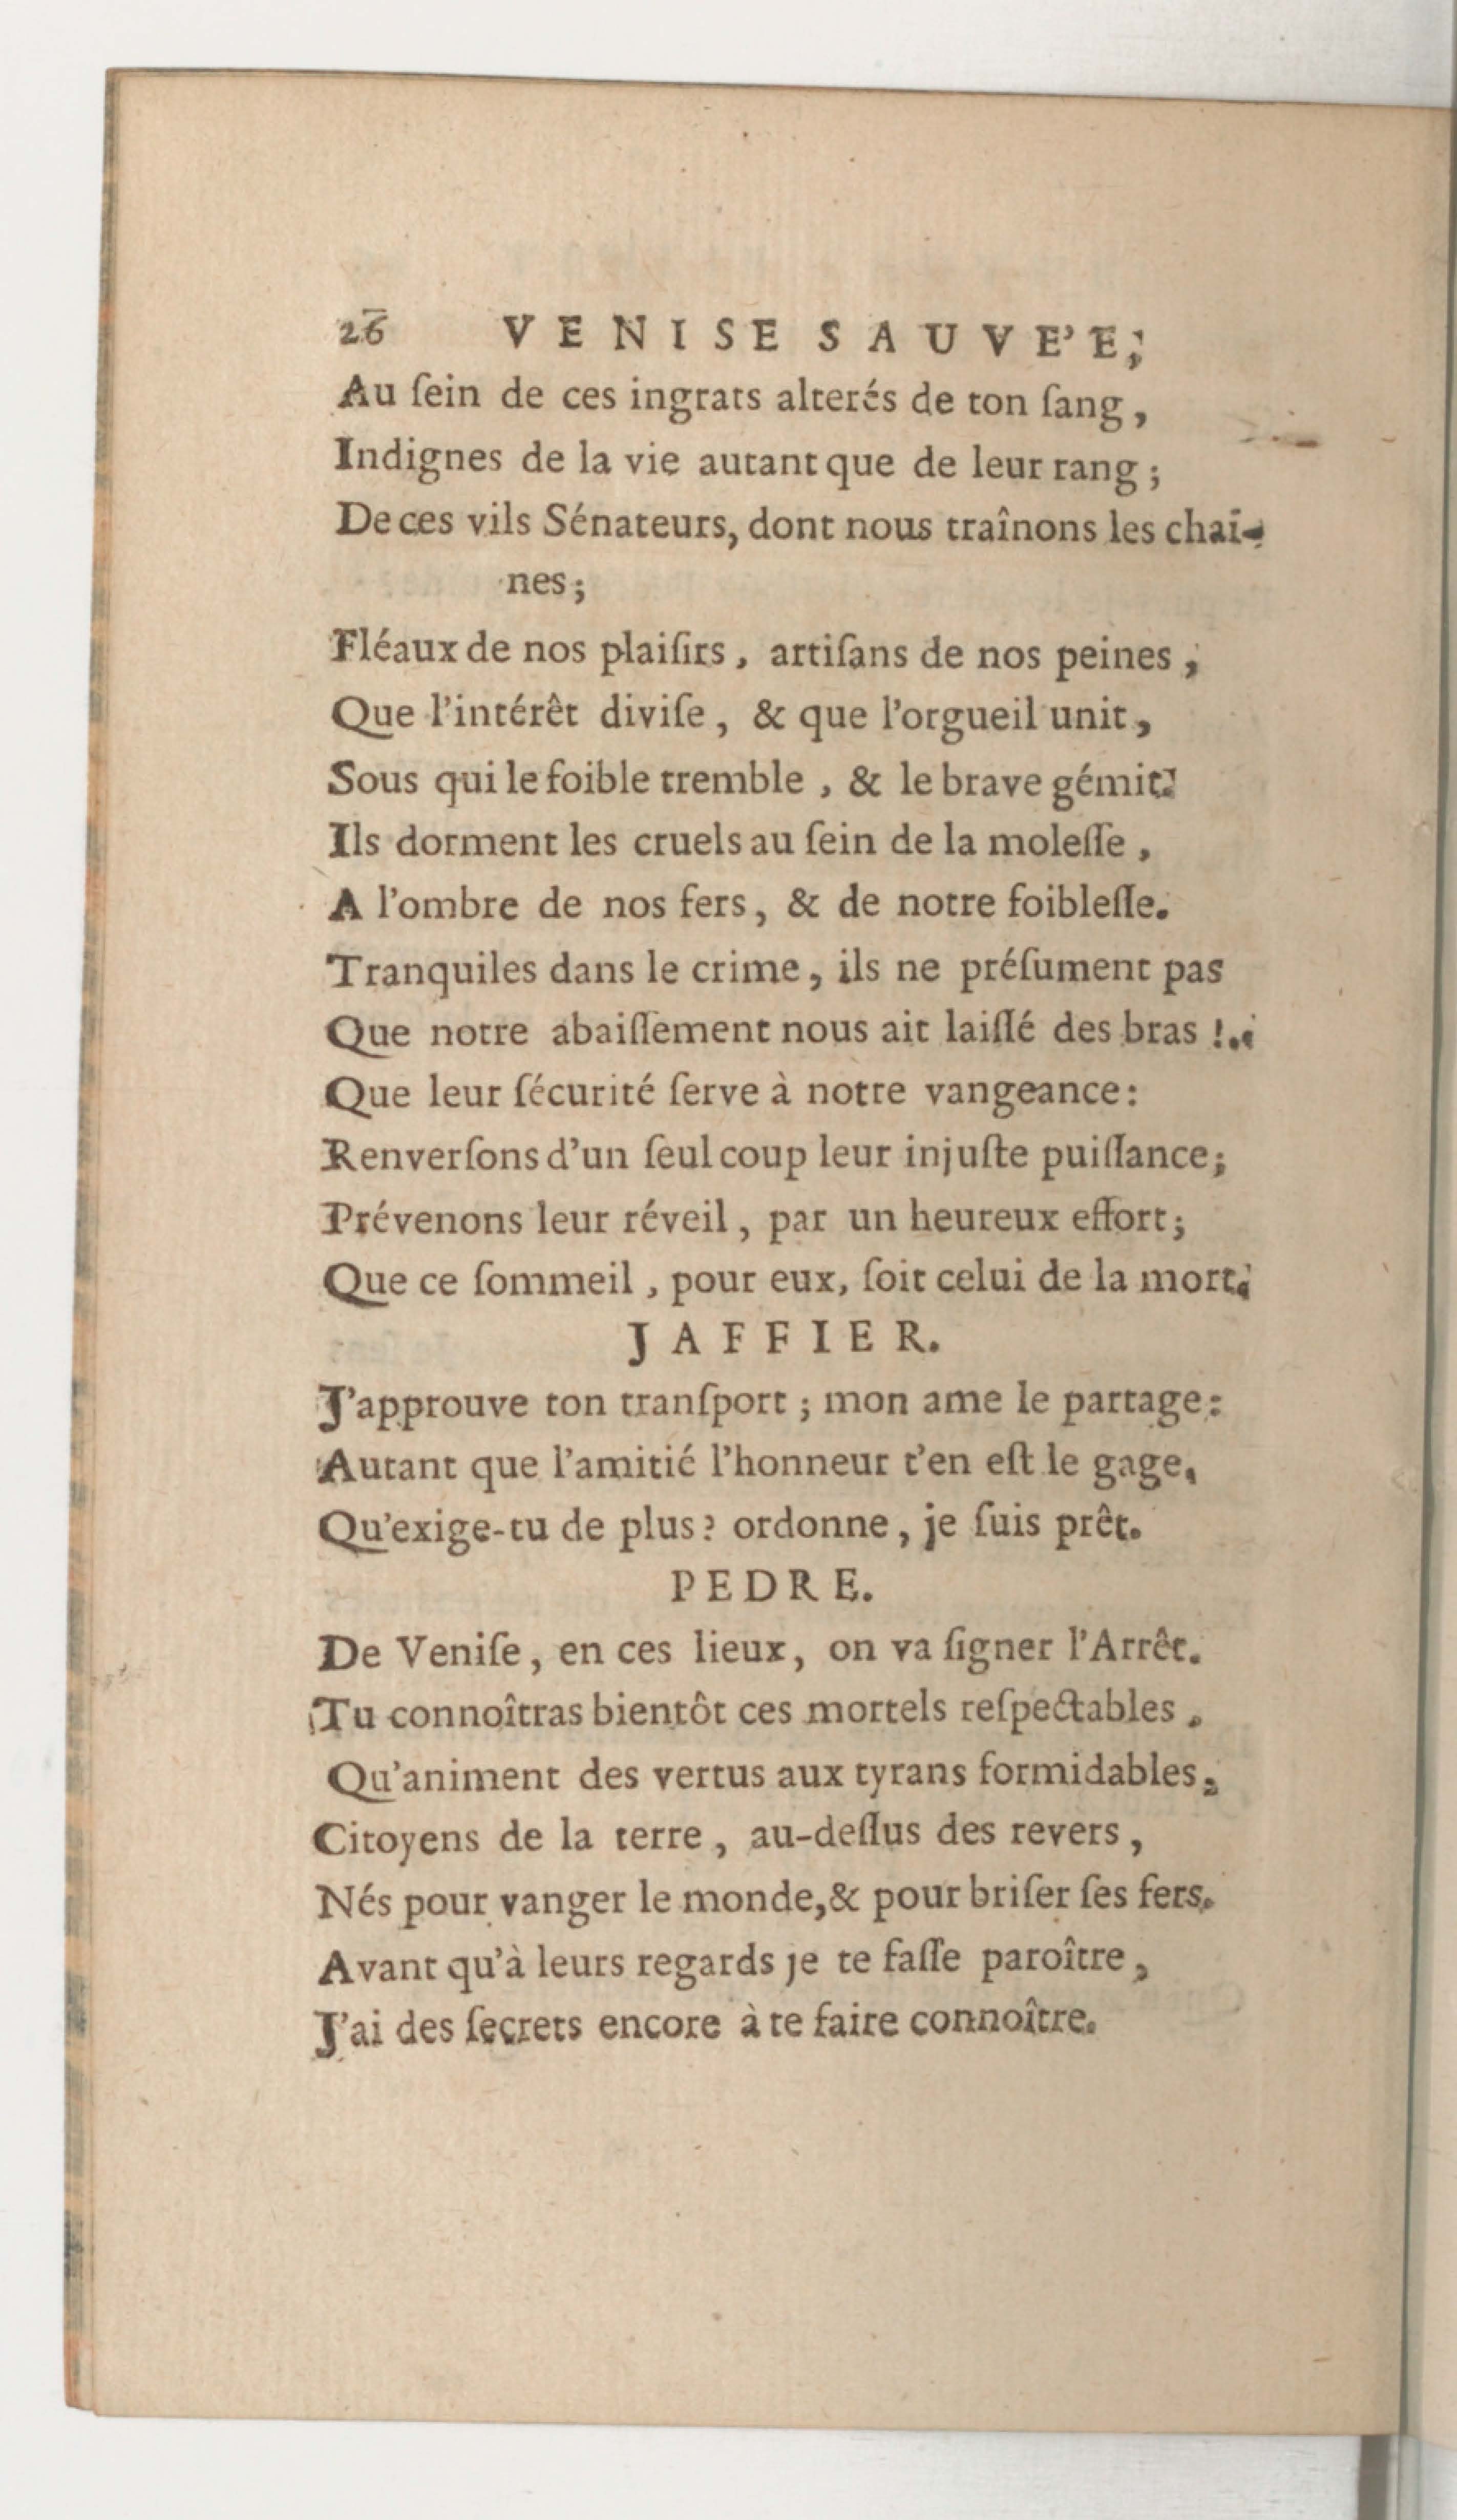 26 VENISE SAUVE'E;
Au ſein de ces ingrats alterés de ton ſang,
Indignes de la vie autant que de leur rang;
De ces vils Sénateurs, dont nous traînons les chaî-
nes;
Fléaux de nos plaiſirs, artiſans de nos peines,
Que l'intérêt diviſe, & que l'orgueil unit,
Sous qui le foible tremble, & le brave gémit.
Ils dorment les cruels au ſein de la moleſſe,
A l'ombre de nos fers, & de notre foibleſſe.
Tranquiles dans le crime, ils ne préſument pas
Que notre abaiſſement nous ait laiſſé des bras!..
Que leur ſécurité ſerve à notre vangeance:
Renverſons d'un ſeul coup leur injuſte puiſſance;
Prévenons leur réveil, par un heureux effort;
Que ce ſommeil, pour eux, ſoit celui de la mort.
JAFFIER.
J'approuve ton tranſport; mon ame le partage:
Autant que l'amitié l'honneur t'en eſt le gage,
Qu'exige-tu de plus? ordonne, je ſuis prêt.
PEDRE.
De Veniſe, en ces lieux, on va ſigner l'Arrêt.
Tu connoîtras bientôt ces mortels reſpectables,
Qu'animent des vertus aux tyrans formidables,
Citoyens de la terre, au-deſſus des revers,
Nés pour vanger le monde, & pour briſer ſes fers.
Avant qu'à leurs regards je te faſſe paroître,
J'ai des ſecrets encore à te faire connoître.